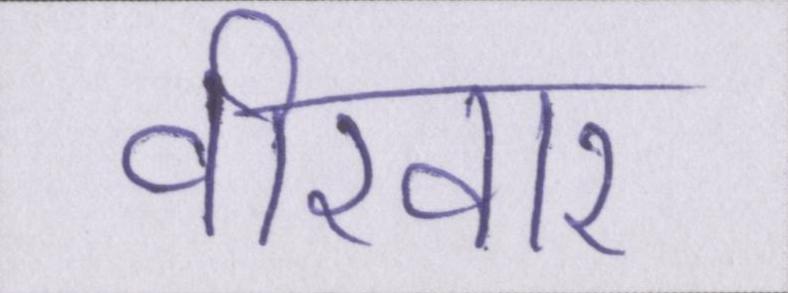 वीरवार